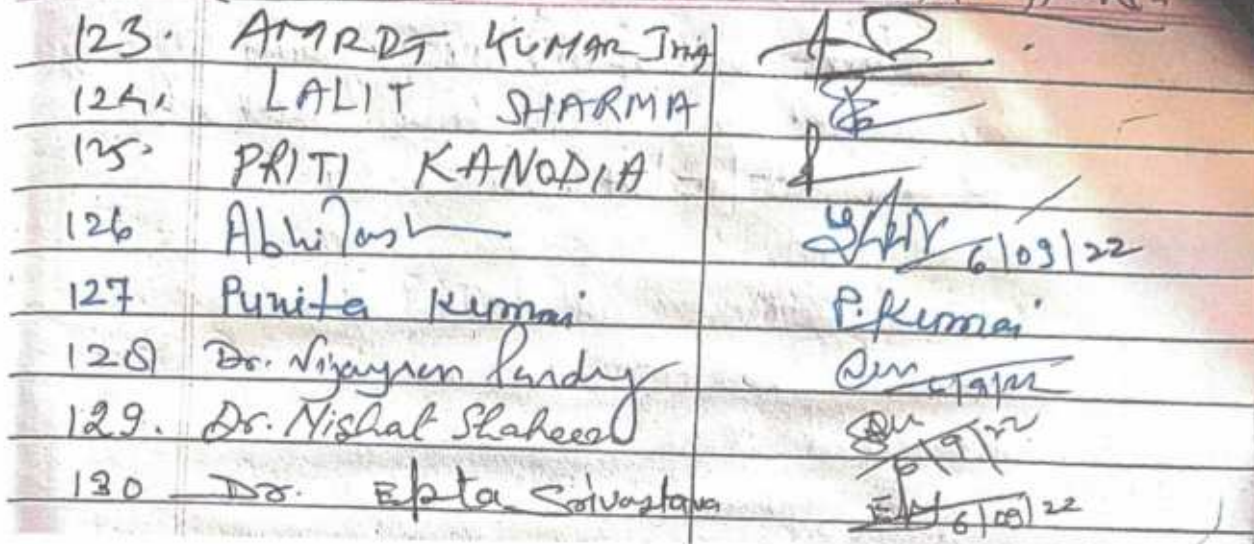 123. KUMAR
124. LALIT SHARMA
125. PRITI KANODIA
126 Abhilash 6/09/22
127 Punita Kumai P. Kumai
128 Dr. Pandey 6/9/22
129. Dr. Nishat Shaheen 6/9/22
130 Dr. Ekta Srivastava 6/09/22